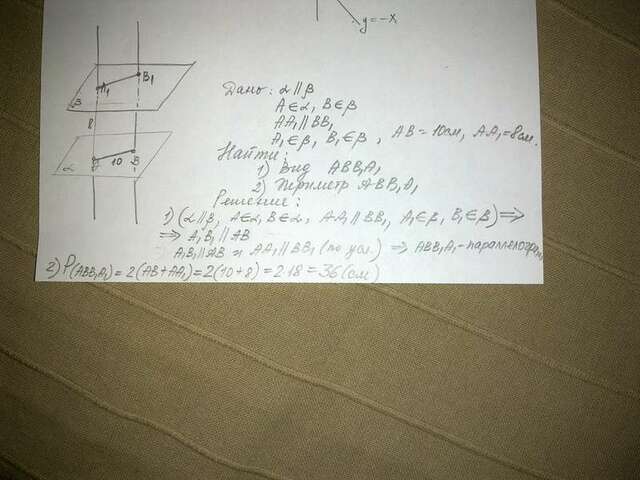 y = -x
A₁
B₁
β
8
10
B
α
Дано: α || β
A ∈ α, B ∈ β
AA₁ || BB₁
A₁ ∈ β, B₁ ∈ β, AB = 10 см, AA₁ = 8 см.
Найти:
1) Вид ABB₁A₁
2) Периметр ABB₁A₁
Решение:
1) (α || β, A ∈ α, B ∈ α, AA₁ || BB₁, A₁ ∈ β, B₁ ∈ β) ⇒
⇒ A₁B₁ || AB
A₁B₁ || AB и AA₁ || BB₁ (по усл.) ⇒ ABB₁A₁ - параллелограмм
2) P(ABB₁A₁) = 2(AB + AA₁) = 2(10 + 8) = 2·18 = 36 (см)